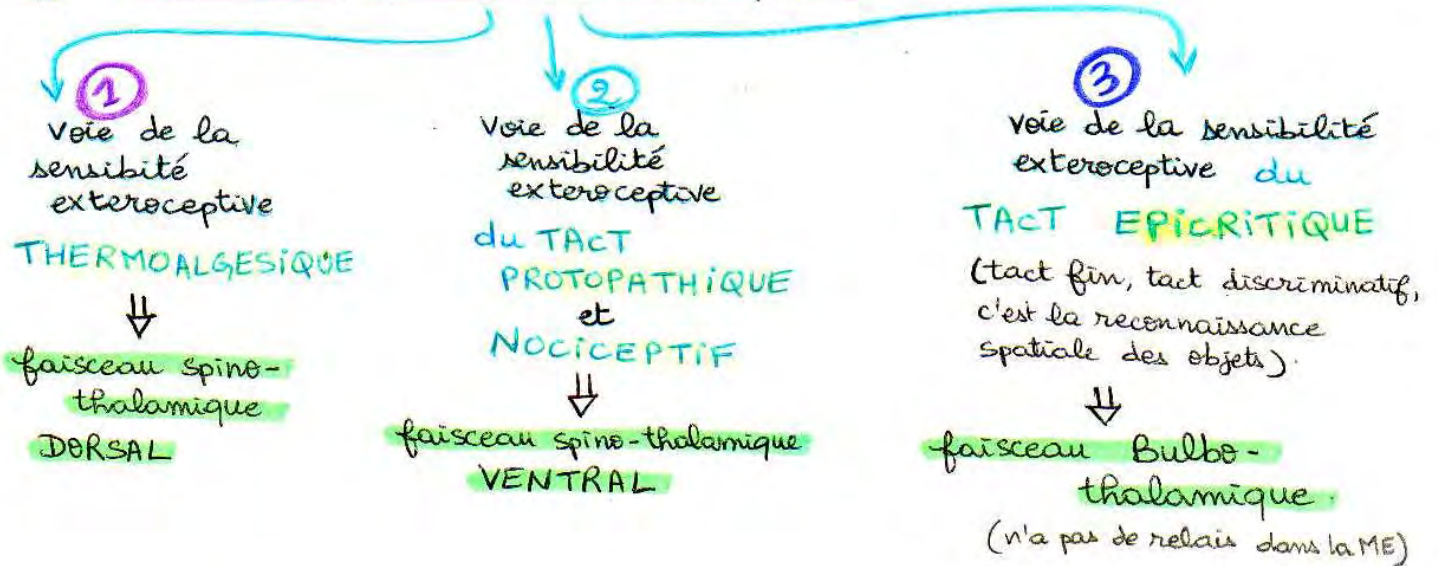 1
Voie de la
sensibité
exteroceptive
THERMOALGESIQUE
⇓
faisceau spino-
thalamique
DORSAL
2
Voie de la
sensibilité
exteroceptive
du TACT
PROTOPATHIQUE
et
NOCICEPTIF
⇓
faisceau spino-thalamique
VENTRAL
3
voie de la sensibilité
exteroceptive du
TACT EPICRITIQUE
(tact fin, tact discriminatif,
c'est la reconnaissance
spatiale des objets).
⇓
faisceau Bulbo-
thalamique.
(n'a pas de relais dans la ME)